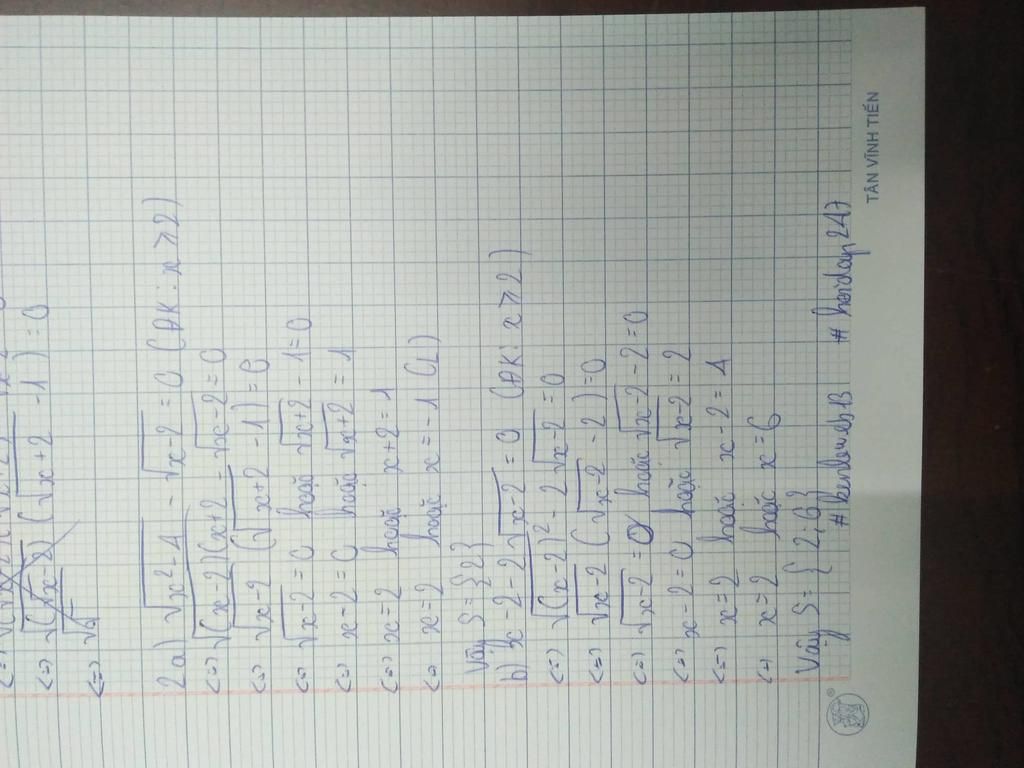 <=> √(x-2) (√x+2 -1) = 0
<=> √
2a) √x²-4 - √x-2 = 0 (ĐK: x ≥ 2)
<=> √(x-2)(x+2 - √x-2 = 0
<=> √x-2 (√x+2 -1) = 0
<=> √x-2 = 0 hoặc √x+2 - 1 = 0
<=> x-2 = 0 hoặc √x+2 = 1
<=> x=2 hoặc x+2 = 1
<=> x=2 hoặc x=-1 (L)
Vậy S={2}
b) x-2-2√x-2 = 0 (ĐK: x ≥ 2)
<=> √(x-2)² - 2√x-2 = 0
<=> √x-2 (√x-2 -2) = 0
<=> √x-2 = 0 hoặc √x-2 -2 = 0
<=> x-2 = 0 hoặc √x-2 = 2
<=> x=2 hoặc x-2 = 4
<=> x=2 hoặc x=6
Vậy S={2;6}
# #hoidap247
TÂN VĨNH TIẾN